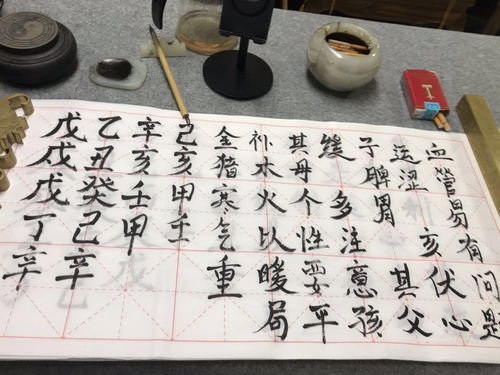 戊戌戊丁辛
乙丑癸己辛
辛亥壬甲
己亥甲壬
金猪寒气重
补水火以暖局
其母个性要平
缓 多注意孩
子脾胃 其父
运涩 亥伏心
血管易有问题